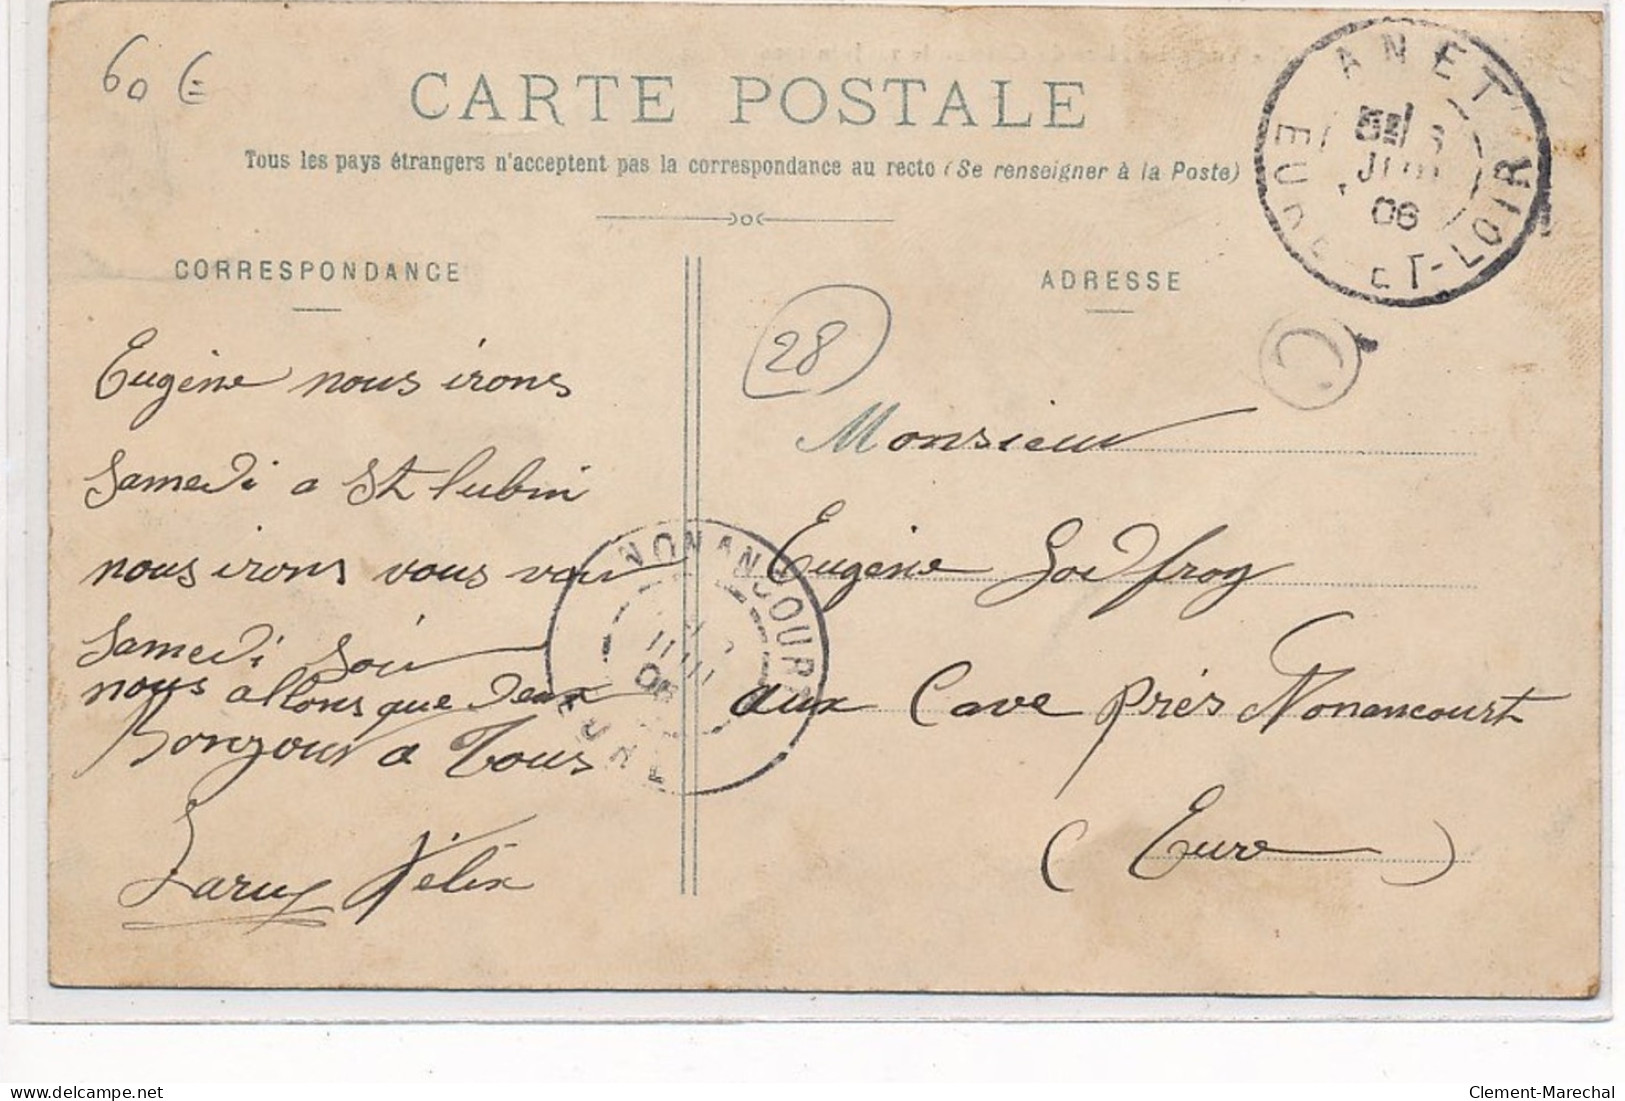 60 €
CARTE POSTALE
Tous les pays étrangers n'acceptent pas la correspondance au recto (Se renseigner à la Poste)
ANET
JUIN
06
EURE-ET-LOIR
CORRESPONDANCE
ADRESSE
28
C
Eugène nous irons
Samedi a St lubin
nous irons vous voir
Samedi soir
nous allons que deux
Bonjour a Tous
Félix
NONANCOURT
06
EURE
Monsieur
Eugène Godfroy
aux Cave près Nonancourt
(Eure)
delcampe.net
Clement-Marechal